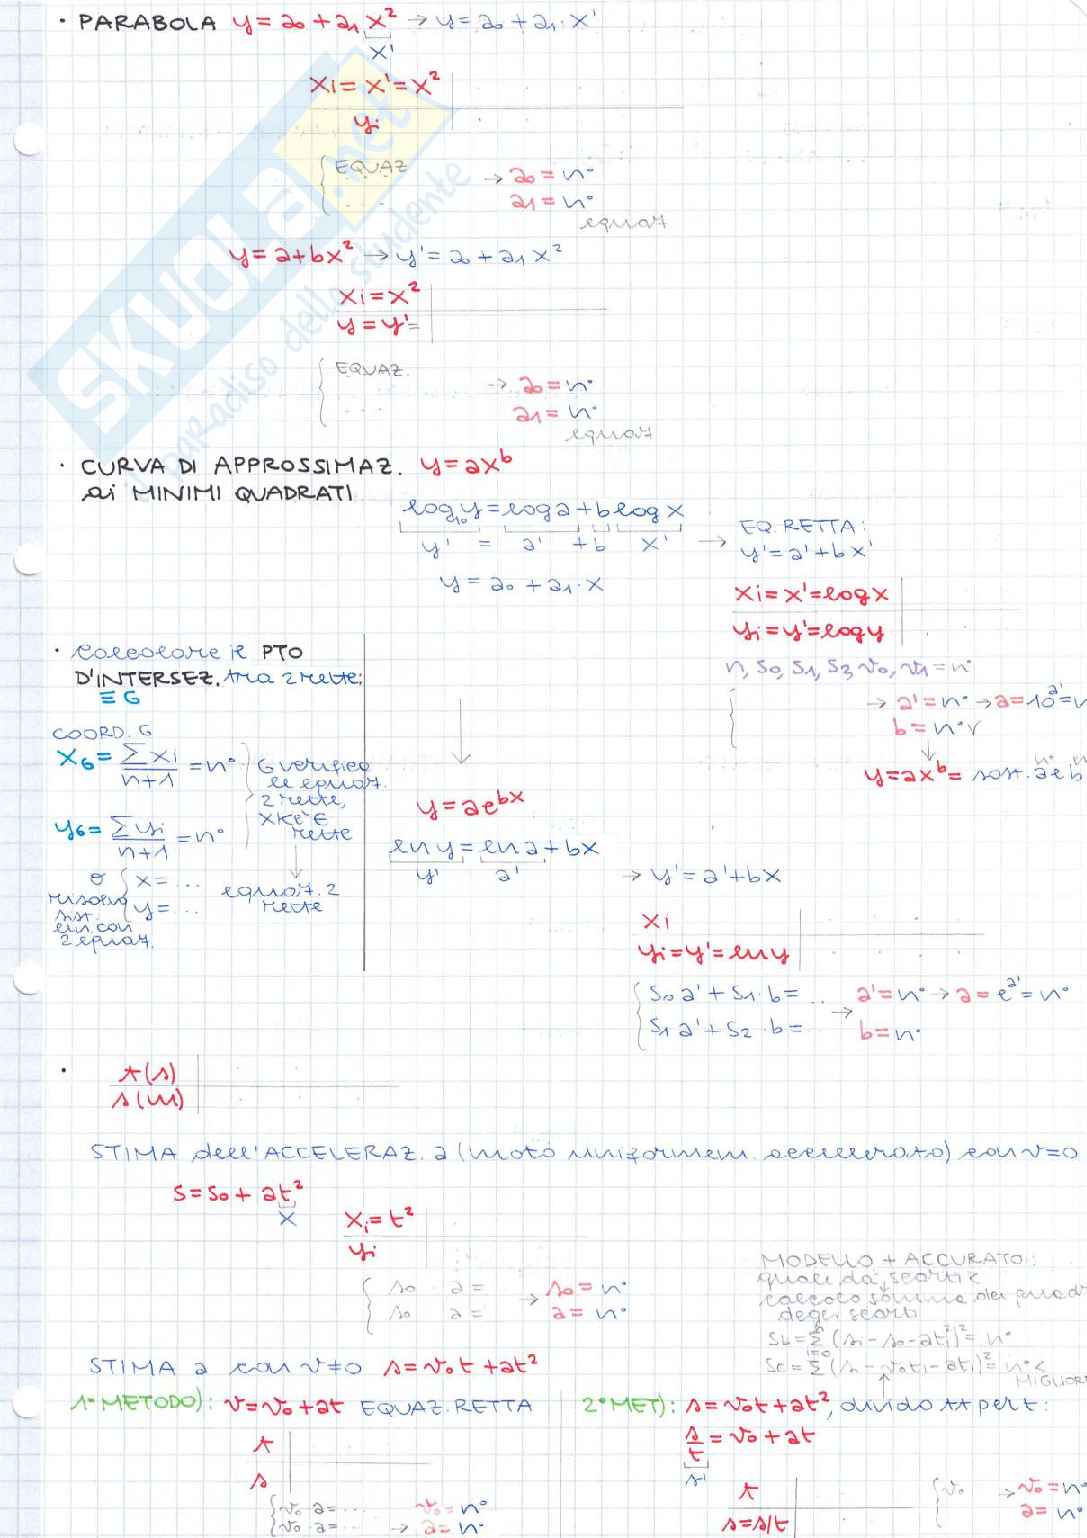 · PARABOLA y = a₀ + a₁ x² → y = a₀ + a₁ · x'
x'
xi = x' = x²
yi
{ EQUAZ → a₀ = n°
a₁ = n°
equaz
y = a + bx² → y' = a₀ + a₁ x²
xi = x²
y = y' =
{ EQUAZ. → a₀ = n°
a₁ = n°
equaz
· CURVA DI APPROSSIMAZ. y = ax^b
ai MINIMI QUADRATI
log₁₀y = log a + b log x
y' = a' + b x' →
EQ. RETTA:
y' = a' + b x'
y = a₀ + a₁ · x
xi = x' = log x
yi = y' = log y
n, S₀, S₁, S₂, v₀, v₁ = n°
{ → a' = n° → a = 10^a' = n
b = n°
y = ax^b = sost. a e b
n° n°
· Calcolare il PTO
D'INTERSEZ. tra 2 rette:
≡ G
COORD. G
x_G = Σxi / n+1 = n°
y_G = Σyi / n+1 = n°
G verifica
le equaz.
2 rette,
xké ∈
rette
equaz. 2
rette
o
risolvo
sist.
lin con
2 equaz.
{ x = ...
y = ...
y = ae^bx
ln y = ln a + bx
y' a'
→ y' = a' + bx
xi
yi = y' = ln y
{ S₀ a' + S₁ · b = .. → a' = n° → a = e^a' = n°
S₁ a' + S₂ · b = b = n°
· t(s)
s(m)
STIMA dell'ACCELERAZ. a (moto uniformem. accelerato) con v=0
s = s₀ + at²
x
xi = t²
yi
{ s₀ a = → s₀ = n°
s₀ a = a = n°
MODELLO + ACCURATO:
quale dà scarti <
calcolo somma dei quadr
degli scarti
Sb = Σ (si - s₀ - ati²)² = n°
i=0
Sc = Σ (si - v₀ti - ati²)² = n° <
MIGLIORE
STIMA a con v≠0 s = v₀t + at²
1° METODO): v = v₀ + at EQUAZ. RETTA
t
s
{ v₀ a = ... v₀ = n°
v₀ a = ... → a = n°
2° MET): s = v₀t + at², divido tt per t:
s/t = v₀ + at
s'
t
s = s/t
{ v₀ → v₀ = n°
a = n°
SKUOLA.net
paradiso dello studente